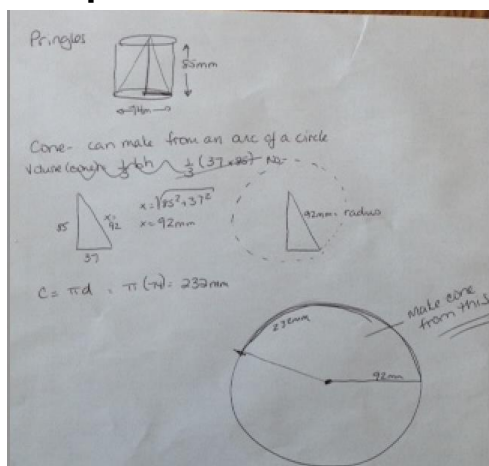 Pringles
85mm
74m
Cone - can make from an arc of a circle
Volume (cone) 1/3 bh 1/3 (37 × 85) No-
x = √85²+37²
x = 92mm
85
x = 92
37
92mm = radius
C = πd = π(74) = 232mm
232mm
make cone
from this
92mm